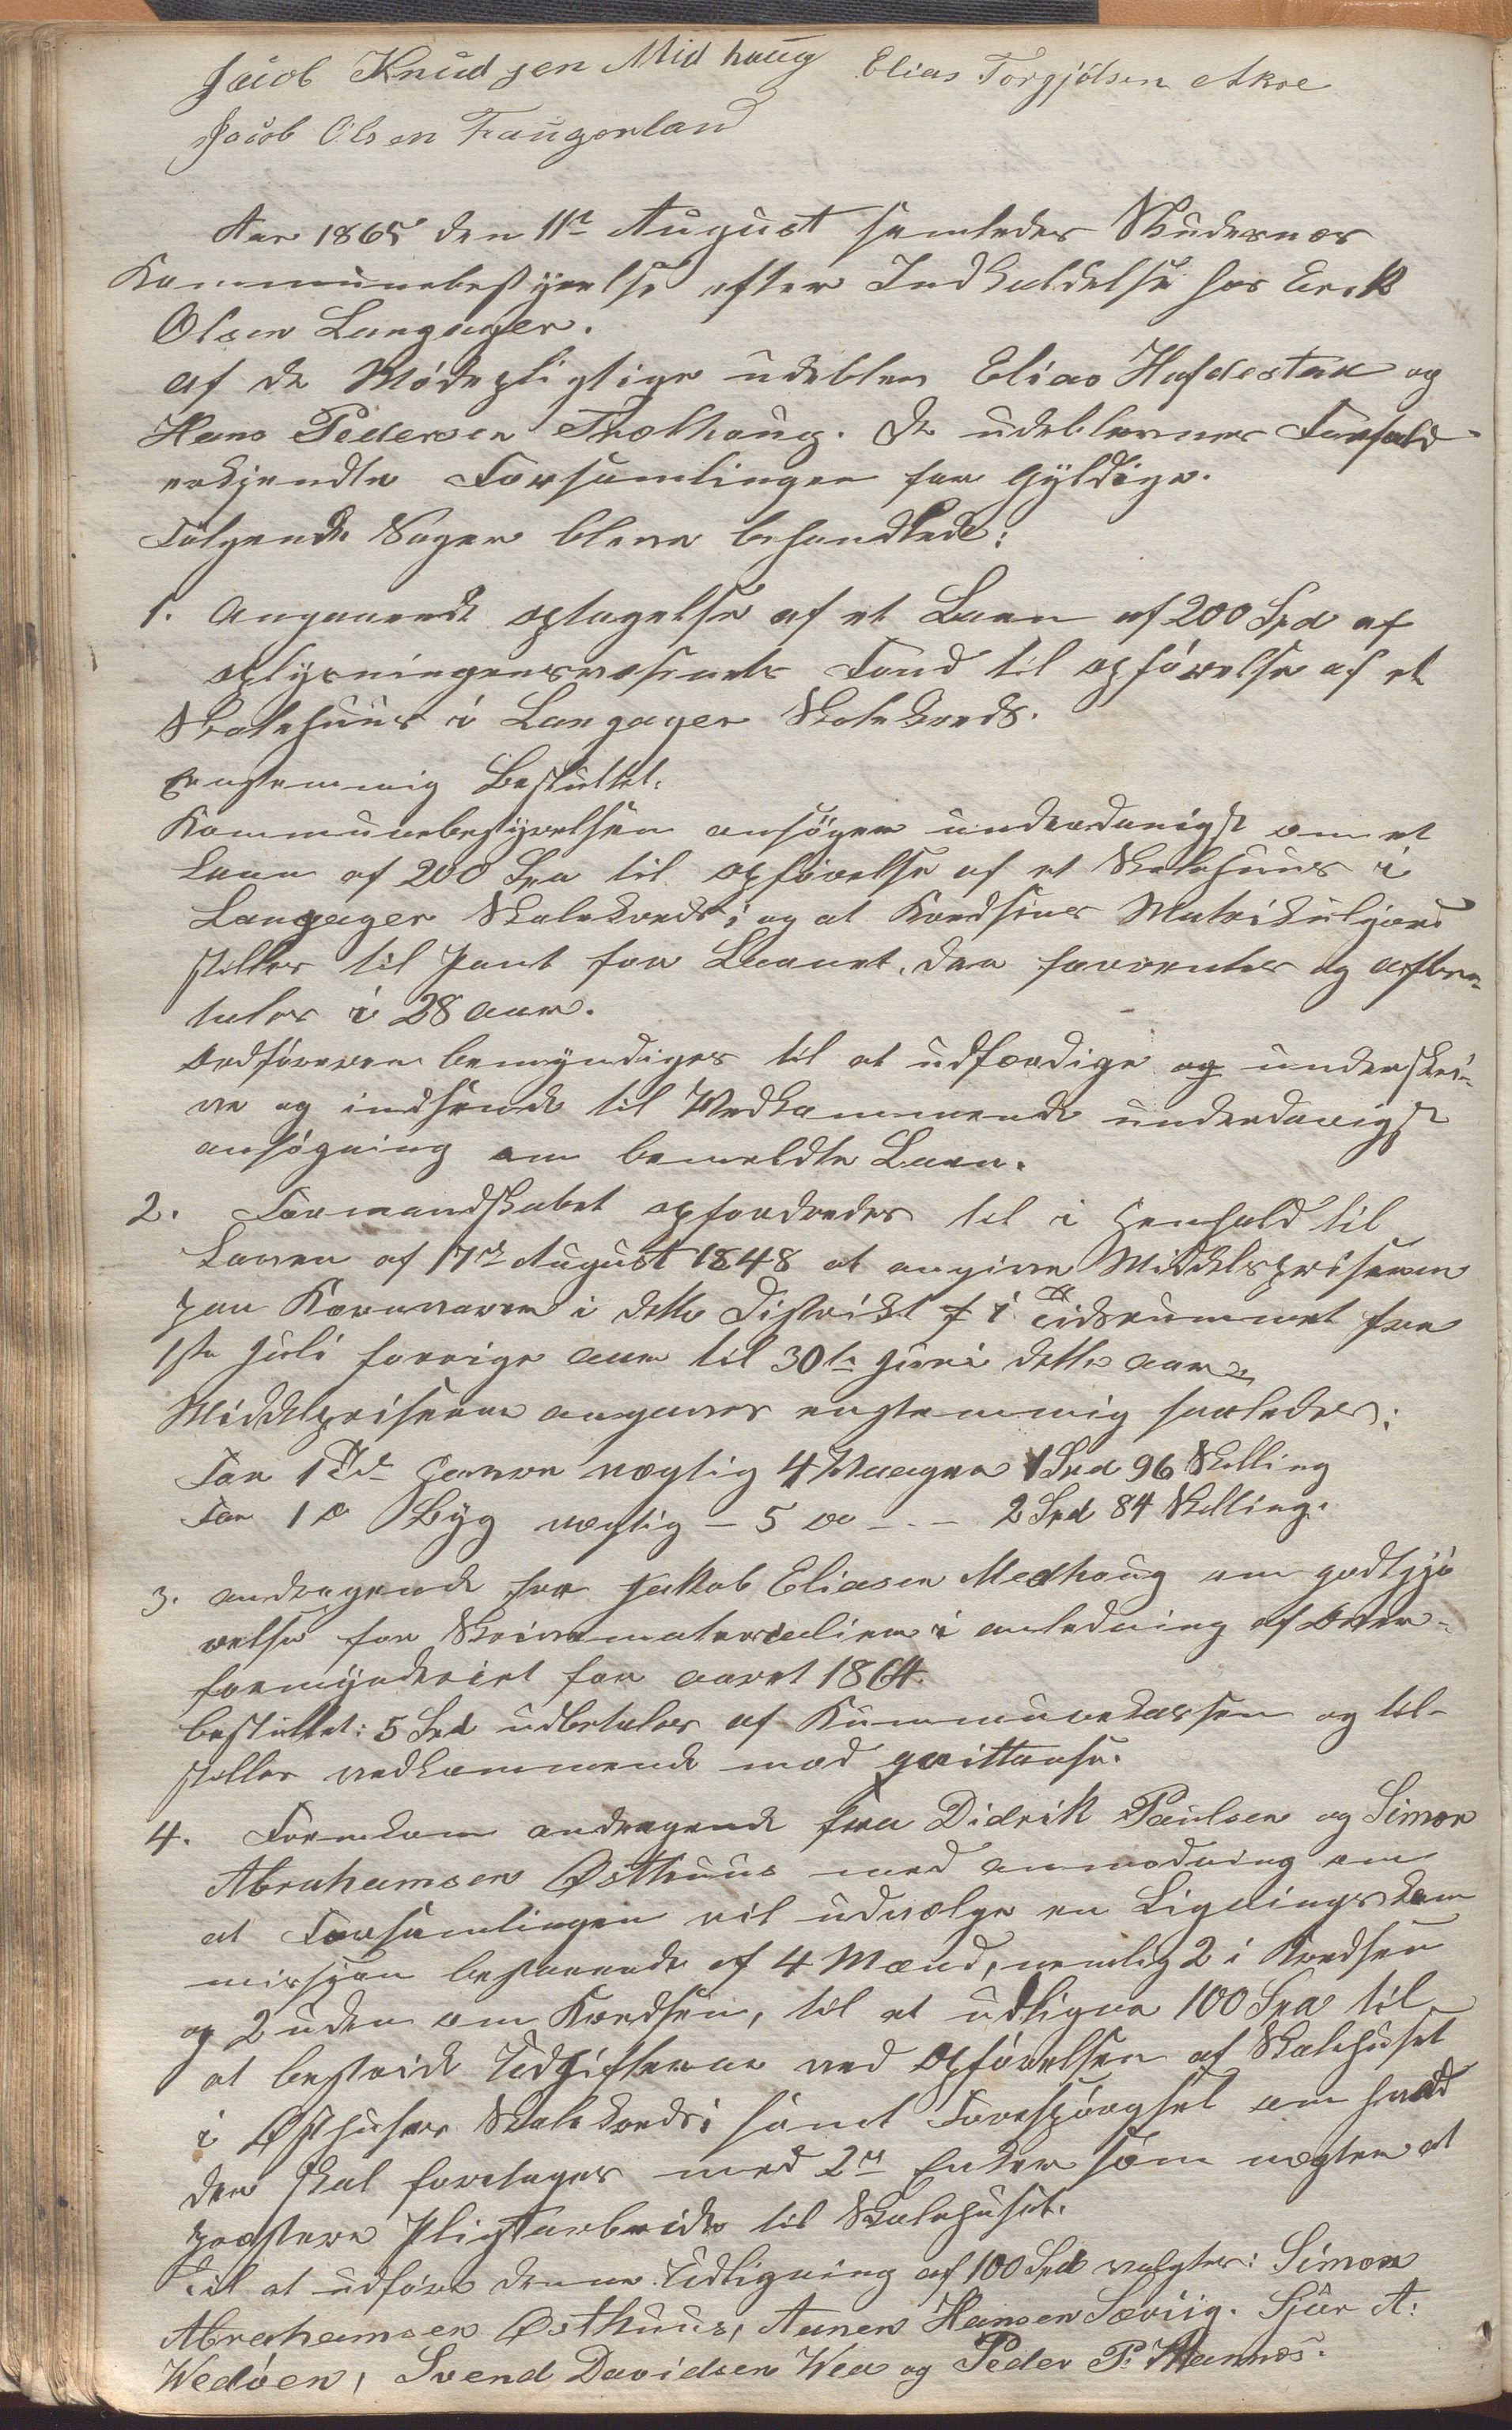 Jacob Knudsen Midhaug Elias Torgjølsen Akre
Jacob Olsen Faugerland
Aar 1865 den 11te August samledes Skudesnæs
Kommunebestyrelse efter Indkaldelse hos Erik
Olsen Langager.
af de Mødepligtige udeblev Elias Hafdestak og
Hans Pedersen Trolhaug. De udeblevnes Forfald
erkjendte Forsamlingen for gyldige.
Følgende Sager bleve behandlede:
1. Angaaende optagelse af et Laan af 200 Spd af
oplysningensvæsenets Fond til opførelse af et
Skolehuus i Langager Skolekreds.
Eenstemmig Besluttet.
Kommunebestyrelsen ansøger underdanigst om et
Laan af 200 Spd til opførelse af et Skolehuus i
Langager Skolekreds; og at Kredsens Matrikuljord
stilles til Pant for Laanet, der forrentes og afbe-
tales i 28 aar.
Ordføreren bemyndiges til at udfærdige og underskri-
ve og indsende til Vedkommende underdanigst
ansøgning om bemeldte Laan.
2. Formandskabet opfordredes til i Henhold til
Loven af 17de August 1848 at angive Middelspriserne
paa Kornvarer i dette Distrikt i Tidsrummet fra
1ste Juli forrige aar til 30te Juni dette aar.
Middelpriserne angaves enstemmig saaledes:
For 1 Tde Havre vægtig 4 Vaager 1 Spd 96 Skilling
For 1 do Byg vægtig - 5 do - - - 2 Spd 84 Skilling.
3. andragende fra Jakob Eliasen Medhaug om godtgjø
relse for Skrivematerialier i anledning af Over-
formynderiet for aaret 1864.
besluttet: 5 Spd udbetales af Kummunekassen og til-
stilles vedkommende mod qvittanse.
4. Fremkom andragende fra Didrik Paulsen og Simon
Abrahamsen Østhuus med anmodning om
at Forsamlingen vil udvælge en Ligningskom
missjon bestaaende af 4 Mænd, nemlig 2 i Kredsen
og 2 uden om Kredsen, til at udligne 100 Spd til
at bestride Udgifterne ved Opførelsen af Skolehuset
i Østhuses Skolekreds; samt Forespørgsel om hvad
der skal foretages med 2de Enker som nægter at
præstere Pligtarbeide til Skolehuset.
Til at udføre denne Udligning af 100 Spd valgtes: Simon
Abrahamsen Østhuus, Aanen Hansen Sæviig. Sjur A:
Wedøen, Svend Davidsen Wea og Peder P. Mannæs.